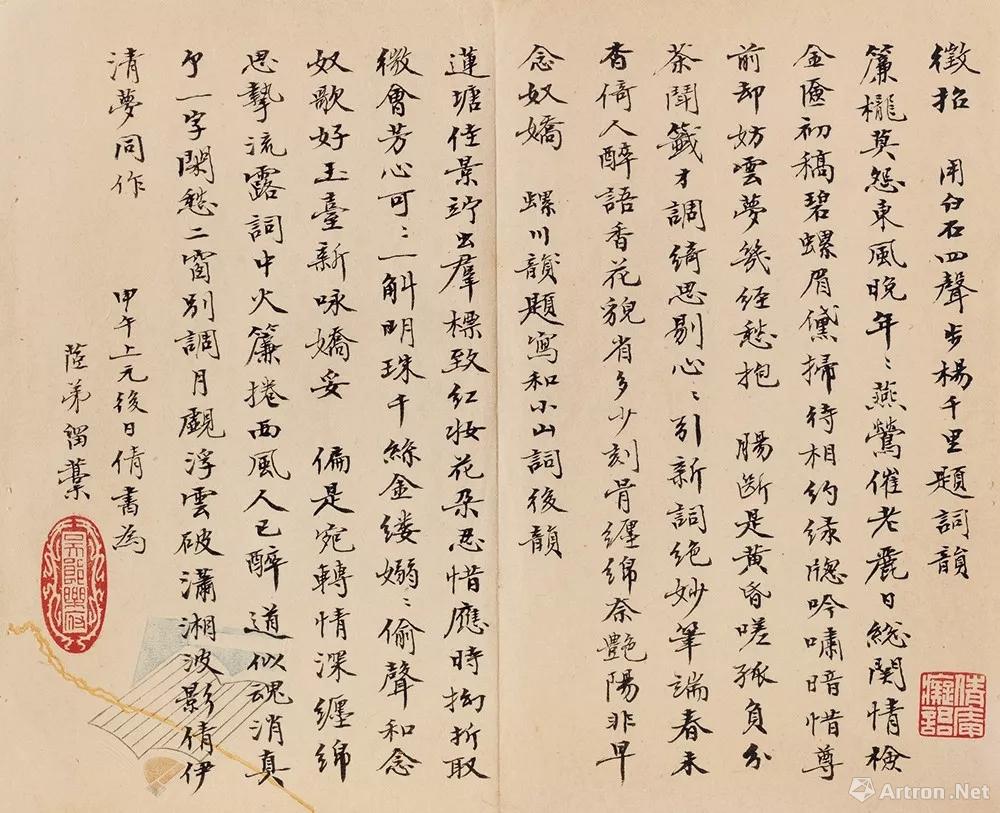 徵招　用白石四聲步楊千里題詞韻
簾櫳莫怨東風晚年〻燕鶯催老麗日總関情檢
金匳初稿碧螺眉黛掃待相約綠牕吟嘯暗惜尊
前却妨雲夢幾経愁抱　腸斷是黃昏嗟孤負分
茶鬪籤才調綺思剔心〻引新詞绝妙筆端春未
杳倚人醉語香花貌省多少刻骨纏綿奈艷陽非早
念奴嬌　螺川韻題寫和小山詞後韻
蓮塘佳景竚出羣標致红妆花朵忍惜應時拗折取
微會芳心可〻一斛明珠千絲金缕嫋〻偷聲和念
奴歌好玉臺新咏嬌妥　偏是宛轉情深纏綿
思摯流露詞中火簾捲西風人已醉道似魂消真
个一字閑愁二窗別調月覷浮雲破瀟湘波影倩伊
清夢同作
甲午上元後日倩書為
蔭弟留叶
Artron.Net